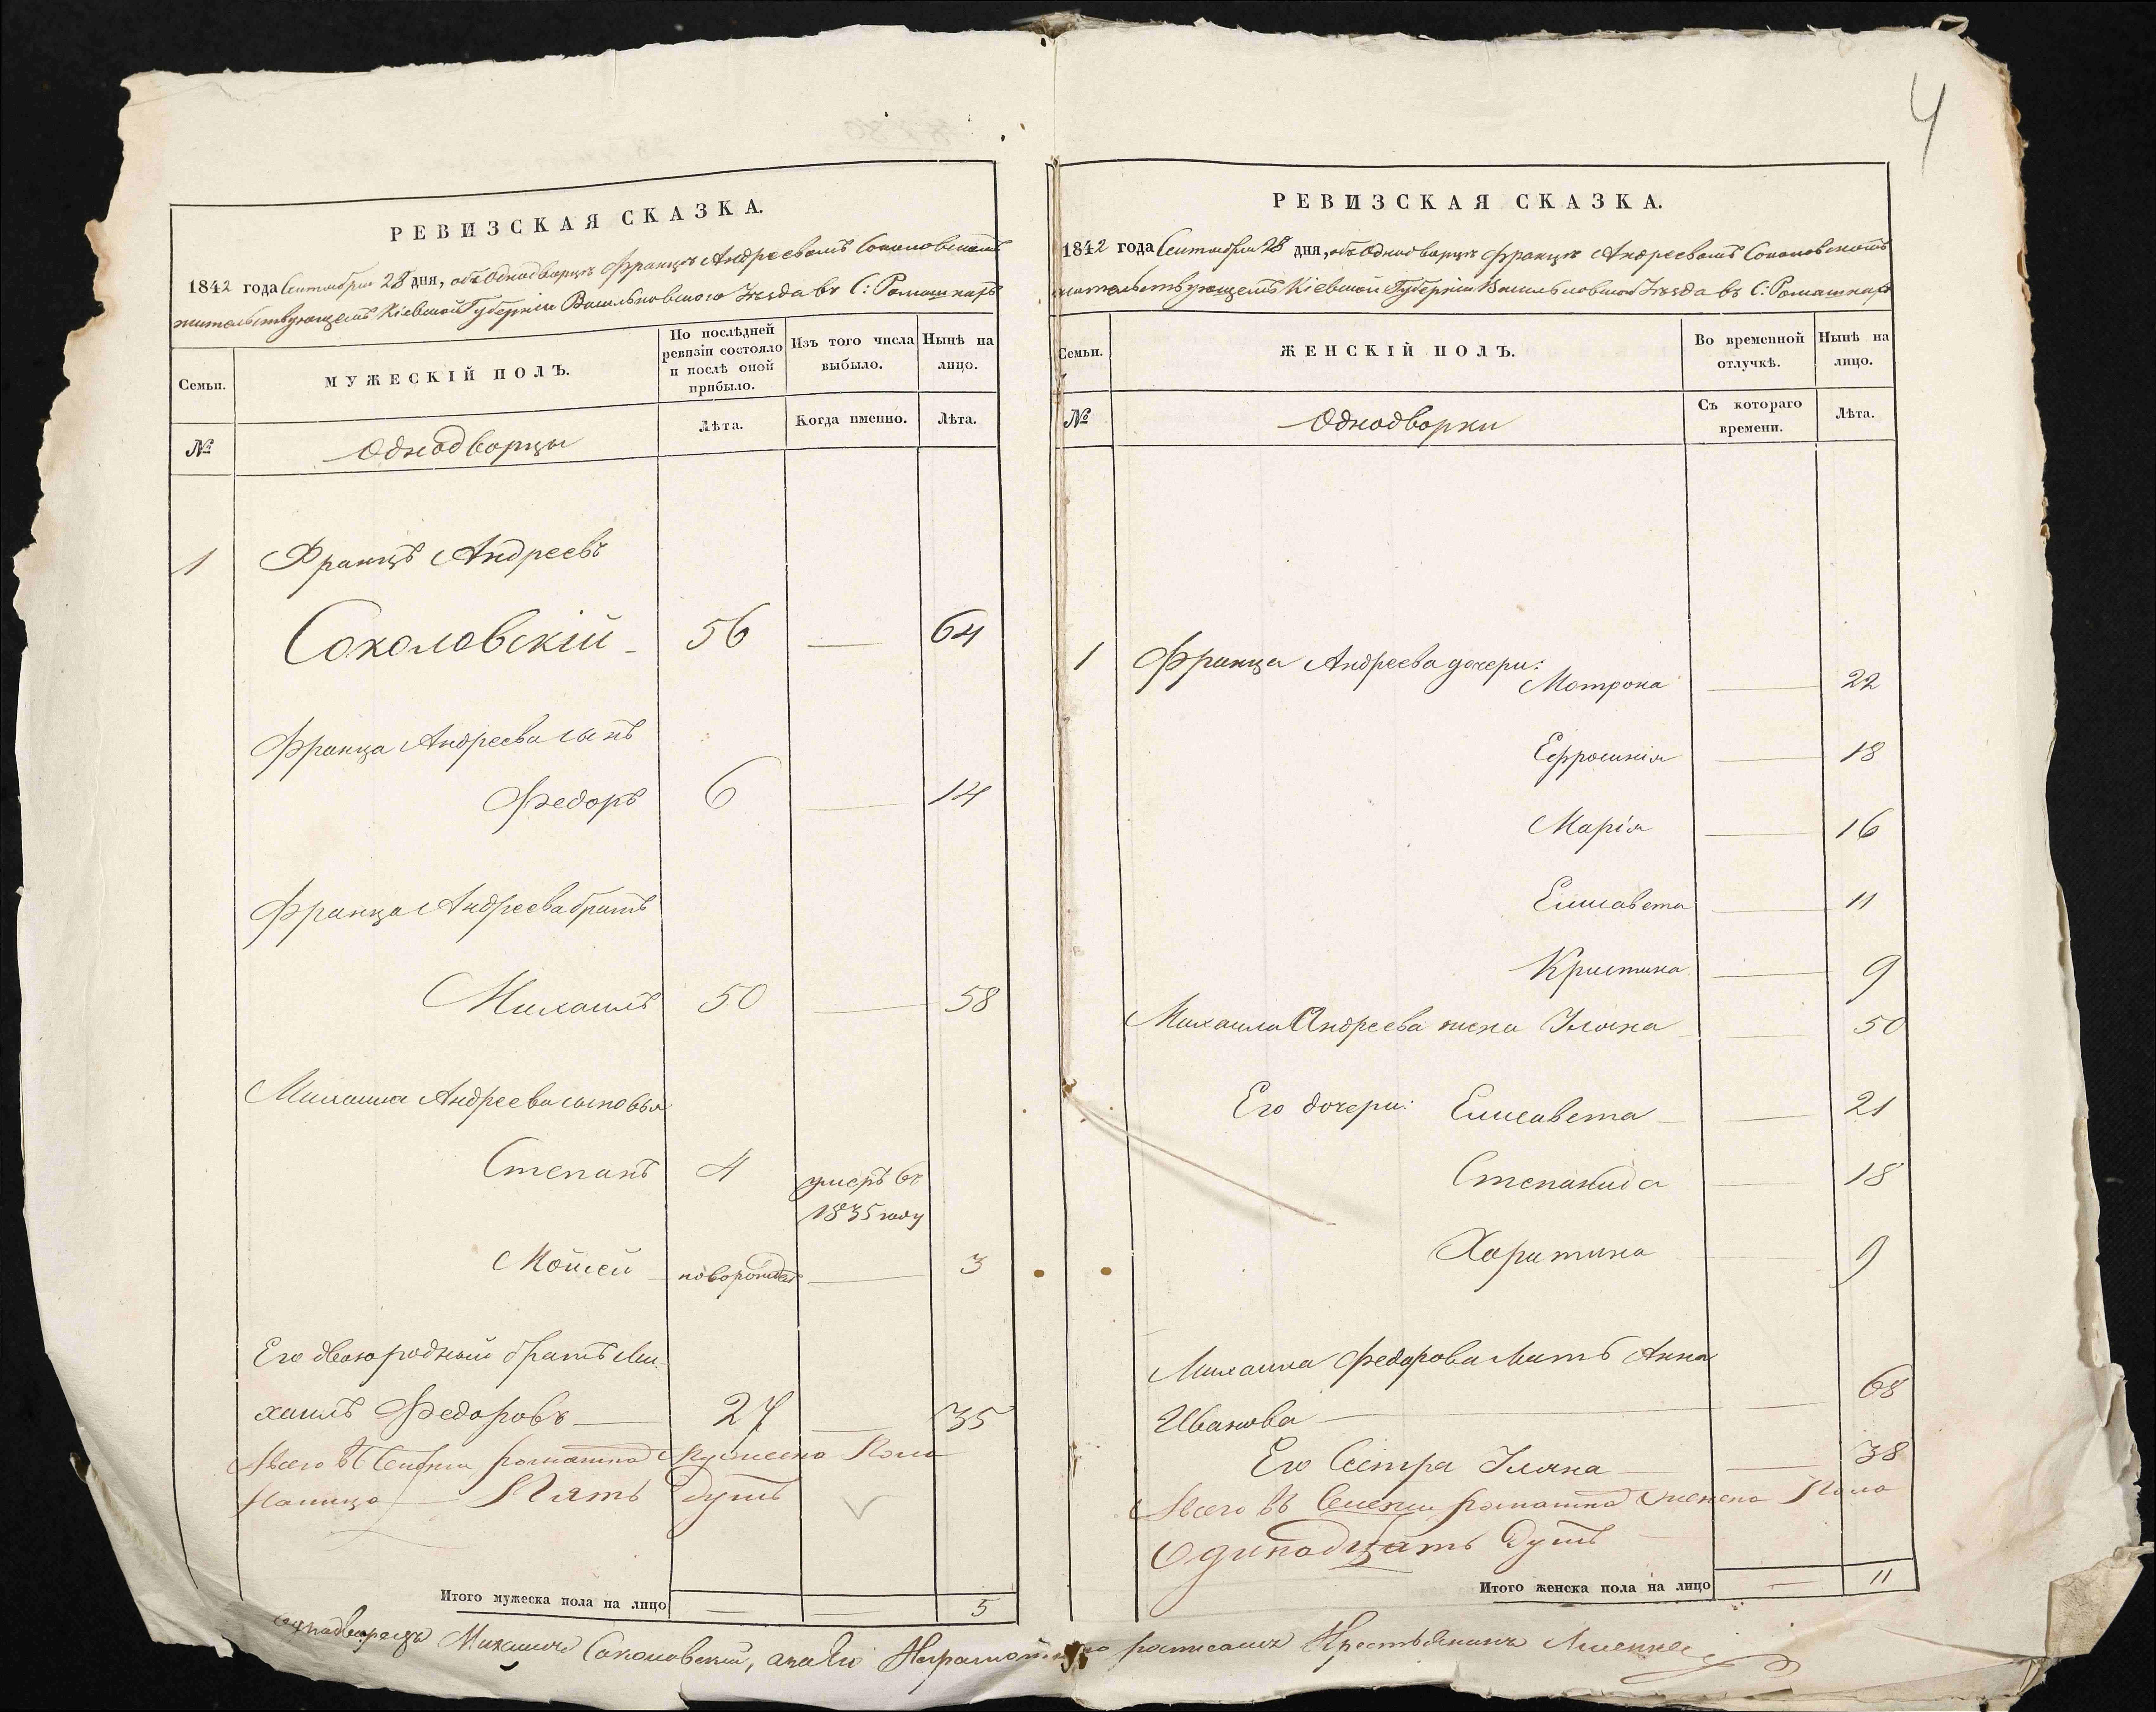 4
РЕВИЗСКАЯ СКАЗКА.
1842 года Сентября 28 дня, объ Однодворцѣ Францѣ Андреевомъ Соколовскомъ
жительствующемъ Кіевской Губерніи Васильковскаго Уѣзда въ С: Ромашкахъ
Семьи.
МУЖЕСКІЙ ПОЛЪ.
По послѣдней ревизіи состояло и послѣ оной прибыло.
Изъ того числа выбыло.
Нынѣ на лицо.
№
Однодворцы
Лѣта.
Когда именно.
Лѣта.
1 Францъ Андреевъ
Соколовскій 56 — 64
Франца Андреева сынъ
Федоръ 6 — 14
Франца Андреева братъ
Михаилъ 50 — 58
Михаила Андреева сыновья
Степанъ 4 умеръ въ
1835 году
Мойсей новорожден — 3
Его двоюродный братъ Ми-
хаилъ Федоровъ — 27 — 35
Всего въ Семьи мужеска Пола
Налицо Пять душъ
Итого мужеска пола на лицо — — 5
РЕВИЗСКАЯ СКАЗКА.
1842 года Сентября 28 дня, объ Однодворцѣ Францѣ Андреевомъ Соколовскомъ
жительствующемъ Кіевской Губерніи Васильковскаго Уѣзда въ С: Ромашкахъ
Семьи.
ЖЕНСКІЙ ПОЛЪ.
Во временной отлучкѣ.
Нынѣ на лицо.
№
Однодворки
Съ котораго времени.
Лѣта.
1 Франца Андреева дочери:
Мотрона — 22
Ефросинія — 18
Марія — 16
Елисавета — 11
Кристина — 9
Михаила Андреева жена Уляна — 50
Его дочери: Елисавета — 21
Степанида — 18
Харитина — 9
Михаила Федорова Мать Анна
Иванова — — 68
Его Сестра Уляна — — 38
Всего въ Семьи женска Пола
Одинадцать Душъ
Итого женска пола на лицо — 11
однодворецъ Михаилъ Соколовский, а за его Неграмотн росписался Крестьянинъ